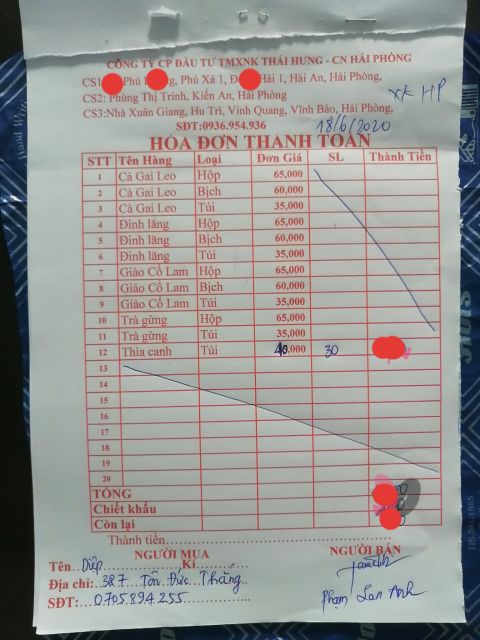 CÔNG TY CP ĐẦU TƯ TMXNK THÁI HƯNG - CN HẢI PHÒNG
CS1: Phú Xá 1, Hải 1, Hải An, Hải Phòng,
CS2: Phùng Thị Trinh, Kiến An, Hải Phòng
XK HP
CS3:Nhà Xuân Giang, Hu Trì, Vinh Quang, Vĩnh Bảo, Hải Phòng,
SĐT:0936.954.936
18/6/2020
HÓA ĐƠN THANH TOÁN
STT Tên Hàng Loại Đơn Giá SL Thành Tiền
1 Cà Gai Leo Hộp 65,000
2 Cà Gai Leo Bịch 60,000
3 Cà Gai Leo Túi 35,000
4 Đinh lăng Hộp 65,000
5 Đinh lăng Bịch 60,000
6 Đinh lăng Túi 35,000
7 Giảo Cổ Lam Hộp 65,000
8 Giảo Cổ Lam Bịch 60,000
9 Giảo Cổ Lam Túi 35,000
10 Trà gừng Hộp 65,000
11 Trà gừng Túi 35,000
12 Thìa canh Túi 40,000 30
13
14
15
16
17
18
19
20
TỔNG
Chiết khấu
Còn lại
Thành tiền
NGƯỜI MUA NGƯỜI BÁN
Tên Diệp Kí
Địa chỉ: 387 Tôn Đức Thắng
SĐT: 0705894255
Phạm Lan Anh